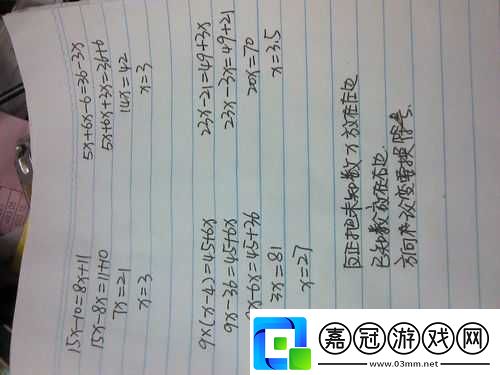 15x-10=8x+11
15x-8x=11+10
7x=21
x=3
5x+6x-6=36-3x
5x+6x+3x=36+6
14x=42
x=3
9×(x-4)=45+6x
9x-36=45+6x
x-6x=45+36
3x=81
x=27
23x-21=49+3x
23x-3x=49+21
20x=70
x=3.5
反正把未知数x放在左边
已知数放在右边.
方向改变要换符号.
嘉冠游戏网
www.03mm.net